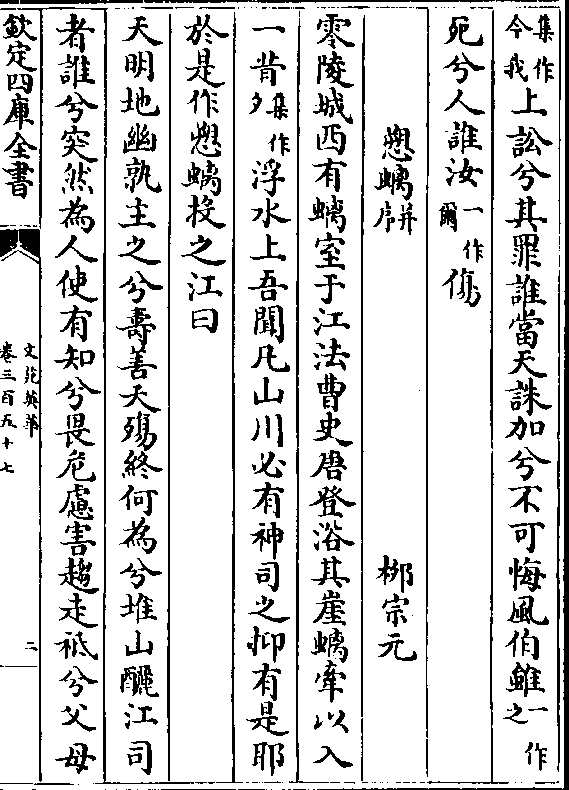 集作今我上訟兮其罪誰當天誅加兮不可悔風伯雖一作之
死兮人誰汝一作爾傷
愬螭并序　柳宗元
零陵城西有螭室于江法曹史唐登浴其崖螭牽以入
一昔集作夕浮水上吾聞凡山川必有神司之抑有是耶
於是作愬螭投之江曰
天明地幽孰主之兮壽善夭殤終何為兮堆山釃江司
者誰兮突然為人使有知兮畏危慮害趨走祗兮父母
欽定四庫全書
文苑英華
卷三百五十七
二